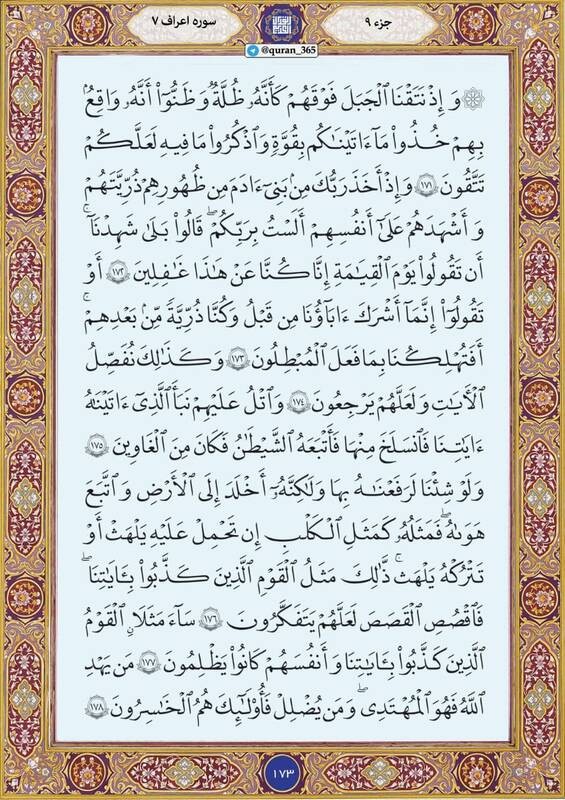 جزء ۹
سوره اعراف ۷
@quran_365
۞ وَ إِذْ نَتَقْنَا ٱلْجَبَلَ فَوْقَهُمْ كَأَنَّهُۥ ظُلَّةٌ وَ ظَنُّوٓا۟ أَنَّهُۥ وَاقِعٌۢ
بِهِمْ خُذُوا۟ مَآ ءَاتَيْنَـٰكُم بِقُوَّةٍ وَٱذْكُرُوا۟ مَا فِيهِ لَعَلَّكُمْ
تَتَّقُونَ ۝١٧١ وَ إِذْ أَخَذَ رَبُّكَ مِنۢ بَنِىٓ ءَادَمَ مِن ظُهُورِهِمْ ذُرِّيَّتَهُمْ
وَ أَشْهَدَهُمْ عَلَىٰٓ أَنفُسِهِمْ أَلَسْتُ بِرَبِّكُمْ ۖ قَالُوا۟ بَلَىٰ شَهِدْنَآ ۛ
أَن تَقُولُوا۟ يَوْمَ ٱلْقِيَـٰمَةِ إِنَّا كُنَّا عَنْ هَـٰذَا غَـٰفِلِينَ ۝١٧٢ أَوْ
تَقُولُوٓا۟ إِنَّمَآ أَشْرَكَ ءَابَآؤُنَا مِن قَبْلُ وَ كُنَّا ذُرِّيَّةً مِّنۢ بَعْدِهِمْ ۖ
أَفَتُهْلِكُنَا بِمَا فَعَلَ ٱلْمُبْطِلُونَ ۝١٧٣ وَ كَذَٰلِكَ نُفَصِّلُ
ٱلْـَٔايَـٰتِ وَ لَعَلَّهُمْ يَرْجِعُونَ ۝١٧٤ وَٱتْلُ عَلَيْهِمْ نَبَأَ ٱلَّذِىٓ ءَاتَيْنَـٰهُ
ءَايَـٰتِنَا فَٱنسَلَخَ مِنْهَا فَأَتْبَعَهُ ٱلشَّيْطَـٰنُ فَكَانَ مِنَ ٱلْغَاوِينَ ۝١٧٥
وَ لَوْ شِئْنَا لَرَفَعْنَـٰهُ بِهَا وَ لَـٰكِنَّهُۥٓ أَخْلَدَ إِلَى ٱلْأَرْضِ وَ ٱتَّبَعَ
هَوَىٰهُ ۚ فَمَثَلُهُۥ كَمَثَلِ ٱلْكَلْبِ إِن تَحْمِلْ عَلَيْهِ يَلْهَثْ أَوْ
تَتْرُكْهُ يَلْهَث ۚ ذَّٰلِكَ مَثَلُ ٱلْقَوْمِ ٱلَّذِينَ كَذَّبُوا۟ بِـَٔايَـٰتِنَا ۚ
فَٱقْصُصِ ٱلْقَصَصَ لَعَلَّهُمْ يَتَفَكَّرُونَ ۝١٧٦ سَآءَ مَثَلًا ٱلْقَوْمُ
ٱلَّذِينَ كَذَّبُوا۟ بِـَٔايَـٰتِنَا وَ أَنفُسَهُمْ كَانُوا۟ يَظْلِمُونَ ۝١٧٧ مَن يَهْدِ
ٱللَّهُ فَهُوَ ٱلْمُهْتَدِى ۖ وَ مَن يُضْلِلْ فَأُو۟لَـٰٓئِكَ هُمُ ٱلْخَـٰسِرُونَ ۝١٧٨
١٧٣